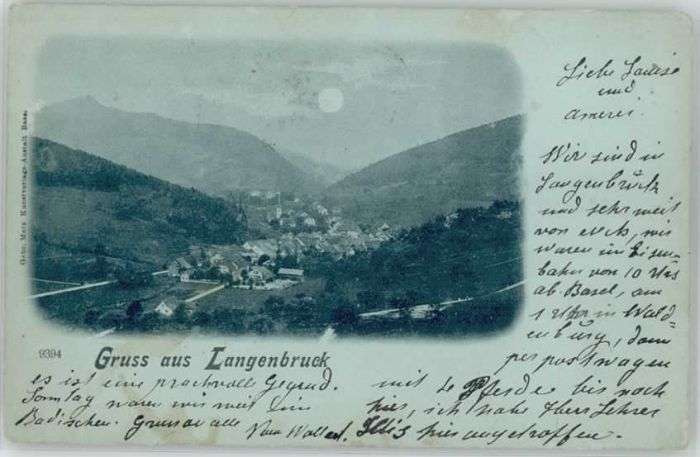 Liebe Louise
und
Wir sind in
Langenbruck
und sehr weit
von euch, wir
waren in Eisen-
bahn von 10
ab Basel, um
1 Uhr in Wald-
enburg, dann
per postwagen
mit Pferde bis nach
hier, ich habe Herr Lehrer
hier angetroffen.
es ist eine prachtvolle Gegend.
Sonntag waren wir weit
Badischen. Gruss an alle
Gebr. Metz Kunstverlags-Anstalt Basel.
9394
Gruss aus Langenbruck